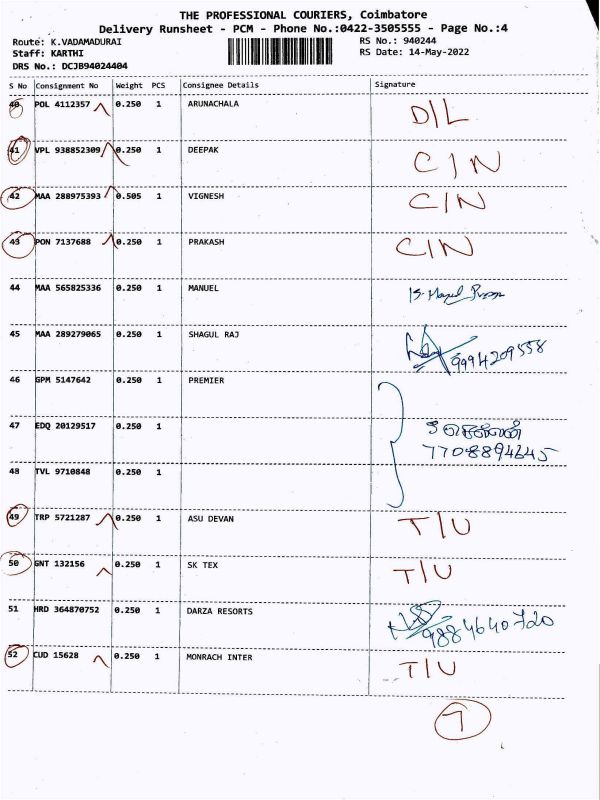 THE PROFESSIONAL COURIERS, Coimbatore
Delivery Runsheet - PCM - Phone No.:0422-3505555 - Page No.:4
Route: K.VADAMADURAI RS No.: 940244
Staff: KARTHI RS Date: 14-May-2022
DRS No.: DCJB94024404
S No Consignment No Weight PCS Consignee Details Signature
40 POL 4112357 0.250 1 ARUNACHALA D/L
41 VPL 938852309 0.250 1 DEEPAK C/N
42 MAA 288975393 0.505 1 VIGNESH C/N
43 PON 7137688 0.250 1 PRAKASH C/N
44 MAA 565825336 0.250 1 MANUEL
45 MAA 289279065 0.250 1 SHAGUL RAJ 9994209558
46 GPM 5147642 0.250 1 PREMIER
47 EDQ 20129517 0.250 1
7708894645
48 TVL 9710848 0.250 1
49 TRP 5721287 0.250 1 ASU DEVAN T/U
50 GNT 132156 0.250 1 SK TEX T/U
51 HRD 364870752 0.250 1 DARZA RESORTS 9884640720
52 CUD 15628 0.250 1 MONRACH INTER T/U
7